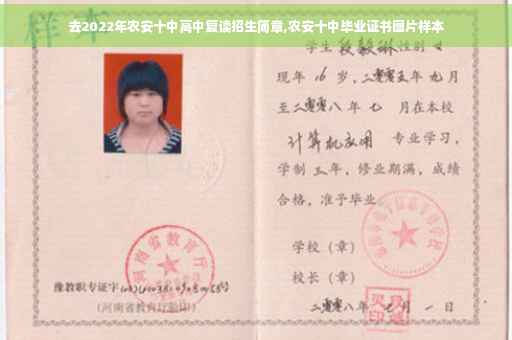 去2022年农安十中高中复读招生简章,农安十中毕业证书图片样本
样本
学生段毅琳性别女
现年16岁,二零零五年九月
至二零零八年七月在本校
计算机应用 专业学习,
学制三年,修业期满,成绩
合格,准予毕业
学校(章)
校长(章)
二零零八年 月一日
河南省教育厅
豫教职专证字
(河南省教育厅验印)